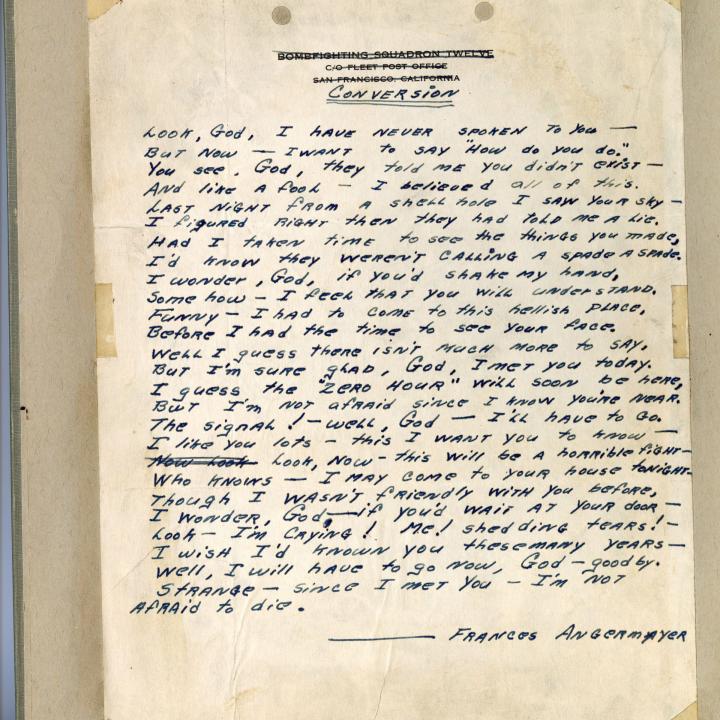 BOMBFIGHTING SQUADRON TWELVE
C/O FLEET POST OFFICE
SAN FRANCISCO, CALIFORNIA
CONVERSION
Look, God, I have never spoken to you —
But now — I want to say "How do you do."
You see, God, they told me you didn't exist —
And like a fool — I believed all of this.
Last night from a shell hole I saw your sky —
I figured right then they had told me a lie.
Had I taken time to see the things you made,
I'd know they weren't calling a spade a spade.
I wonder, God, if you'd shake my hand,
Somehow — I feel that you will understand.
Funny — I had to come to this hellish place,
Before I had the time to see your face.
Well I guess there isn't much more to say,
But I'm sure glad, God, I met you today.
I guess the "Zero Hour" will soon be here,
But I'm not afraid since I know you're near.
The signal! — well, God — I'll have to go.
I like you lots — this I want you to know —
Now Look Look, Now — this will be a horrible fight —
Who knows — I may come to your house tonight —
Though I wasn't friendly with you before,
I wonder, God, — if you'd wait at your door —
Look — I'm crying! Me! shedding tears! —
I wish I'd known you these many years —
Well, I will have to go now, God — goodby.
Strange — since I met you — I'm not
afraid to die.
——— Frances Angermayer